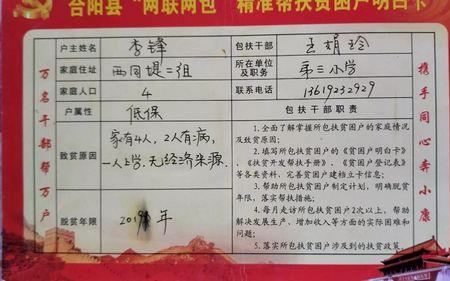 合阳县“两联两包”精准帮扶贫困户明白卡
万名干部帮万户
户主姓名 李锋 包扶干部 王娟玲
家庭住址 西同堤二组 所在单位及职务 第三小学
家庭人口 4 联系电话 13619232929
户属性 低保 包扶干部职责
致贫原因 家有4人,2人有病,
一人上学,无经济来源.
脱贫年限 2019年
1.全面了解掌握所包扶贫困户的家庭情况
及致贫原因;
2.填写所包扶贫困户的《贫困户明白卡》
、《扶贫开发帮扶手册》、《贫困户登记表》
等各类资料,完善贫困户建档立卡信息;
3.帮助所包扶贫困户制定计划,明确脱贫
年限,落实帮扶措施;
4.每月走访所包扶贫困户2次以上,帮助
解决发展生产、增加收入等方面的实际困难和
问题;
5.落实所包扶贫困户涉及到的扶贫政策。
携手同心奔小康